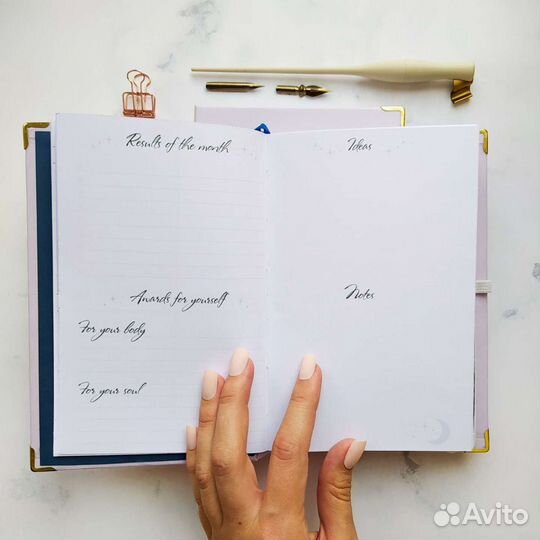 Results of the month
Awards for yourself
For your body
For your soul
Ideas
Notes
Avito